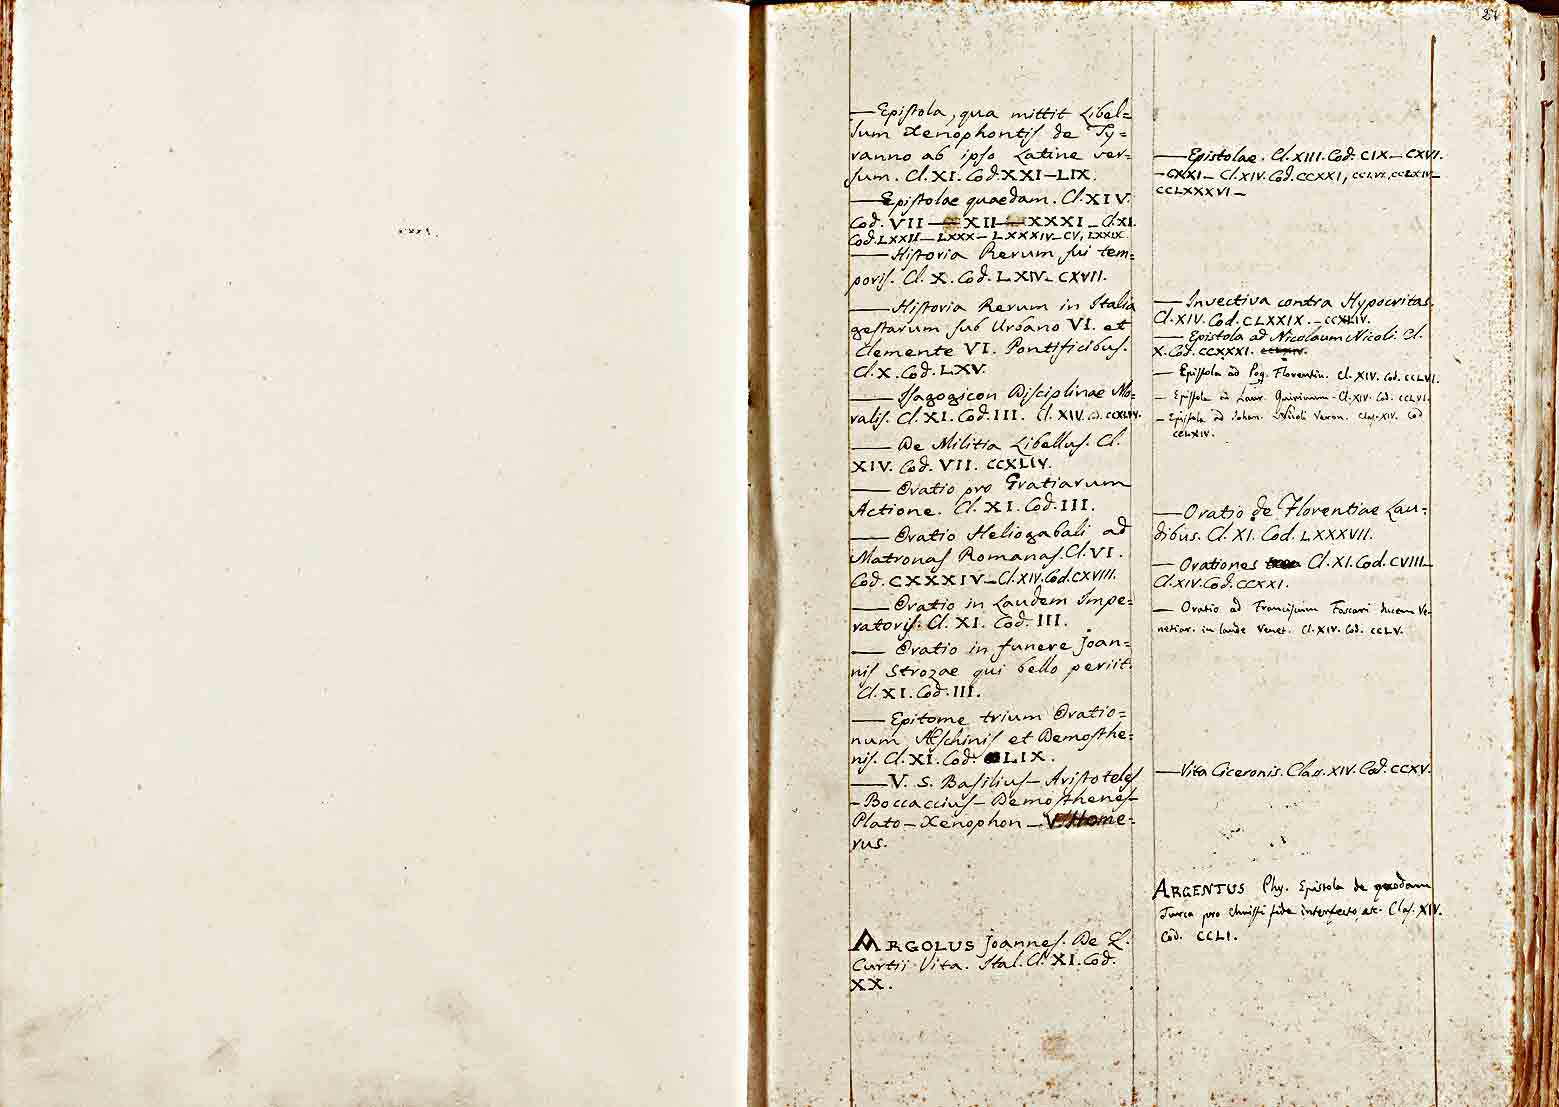 27
—Epistola, qua mittit Libel=
lum Xenophontis de Ty=
ranno ab ipso Latine ver=
sum. Cl. XI. Cod. XXI—LIX.
—Epistolae quaedam. Cl. XIV.
Cod. VII — XII — XXXI — Cl. XI.
Cod. LXXII — LXXX — LXXXIV — CV, LXXIX.
—Historia Rerum sui tem=
poris. Cl. X. Cod. LXIV— CXVII.
—Historia Rerum in Italia
gestarum sub Urbano VI. et
Clemente VI. Pontificibus.
Cl. X. Cod. LXV.
—Isagogicon Disciplinae Mo=
ralis. Cl. XI. Cod. III. Cl. XIV. Cod. CCXLIV.
—De Militia Libellus. Cl.
XIV. Cod. VII. CCXLIV.
—Oratio pro Gratiarum
Actione. Cl. XI. Cod. III.
—Oratio Heliogabali ad
Matronas Romanas. Cl. VI.
Cod. CXXXIV—Cl. XIV. Cod. CXVIII.
—Oratio in Laudem Impe=
ratoris. Cl. XI. Cod. III.
—Oratio in funere Joan=
nis Strozae qui bello periit.
Cl. XI. Cod. III.
—Epitome trium Oratio=
num Æschinis et Demosthe=
nis. Cl. XI. Cod. LIX.
—V. S. Basilius— Aristoteles
—Boccaccius— Demosthenes—
Plato— Xenophon— V. Home=
rus.
ARGOLUS Joannes. De Q.
Curtii Vita. Ital. Cl. XI. Cod.
XX.
—Epistolae. Cl. XIII. Cod. CIX— CXVI.
—CXXI— Cl. XIV. Cod. CCXXI, CCLVI, CCLXIV—
CCLXXXVI—
—Invectiva contra Hypocritas.
Cl. XIV. Cod. CLXXIX.—CCXLIV.
—Epistola ad Nicolaum Nicoli. Cl.
X. Cod. CCXXXI.
—Epistola ad Pog. Florentin. Cl. XIV. Cod. CCLVI.
—Epistola ad Laur. Quirinum. Cl. XIV. Cod. CCLVI.
—Epistola ad Johan. Nicoli Veron. Clas. XIV. Cod
CCLXIV.
—Oratio de Florentiae Lau=
dibus. Cl. XI. Cod. LXXXVII.
—Orationes Cl. XI. Cod. CVIII—
Cl. XIV. Cod. CCXXI.
—Oratio ad Franciscum Foscari ducem Ve=
netiar. in laude Venet. Cl. XIV. Cod. CCLV.
—Vita Ciceronis. Class. XIV. Cod. CCXV.
ARGENTUS Phy. Epistola de quodam
Turca pro Christi fide interfecto, etc. Clas. XIV.
Cod. CCLI.